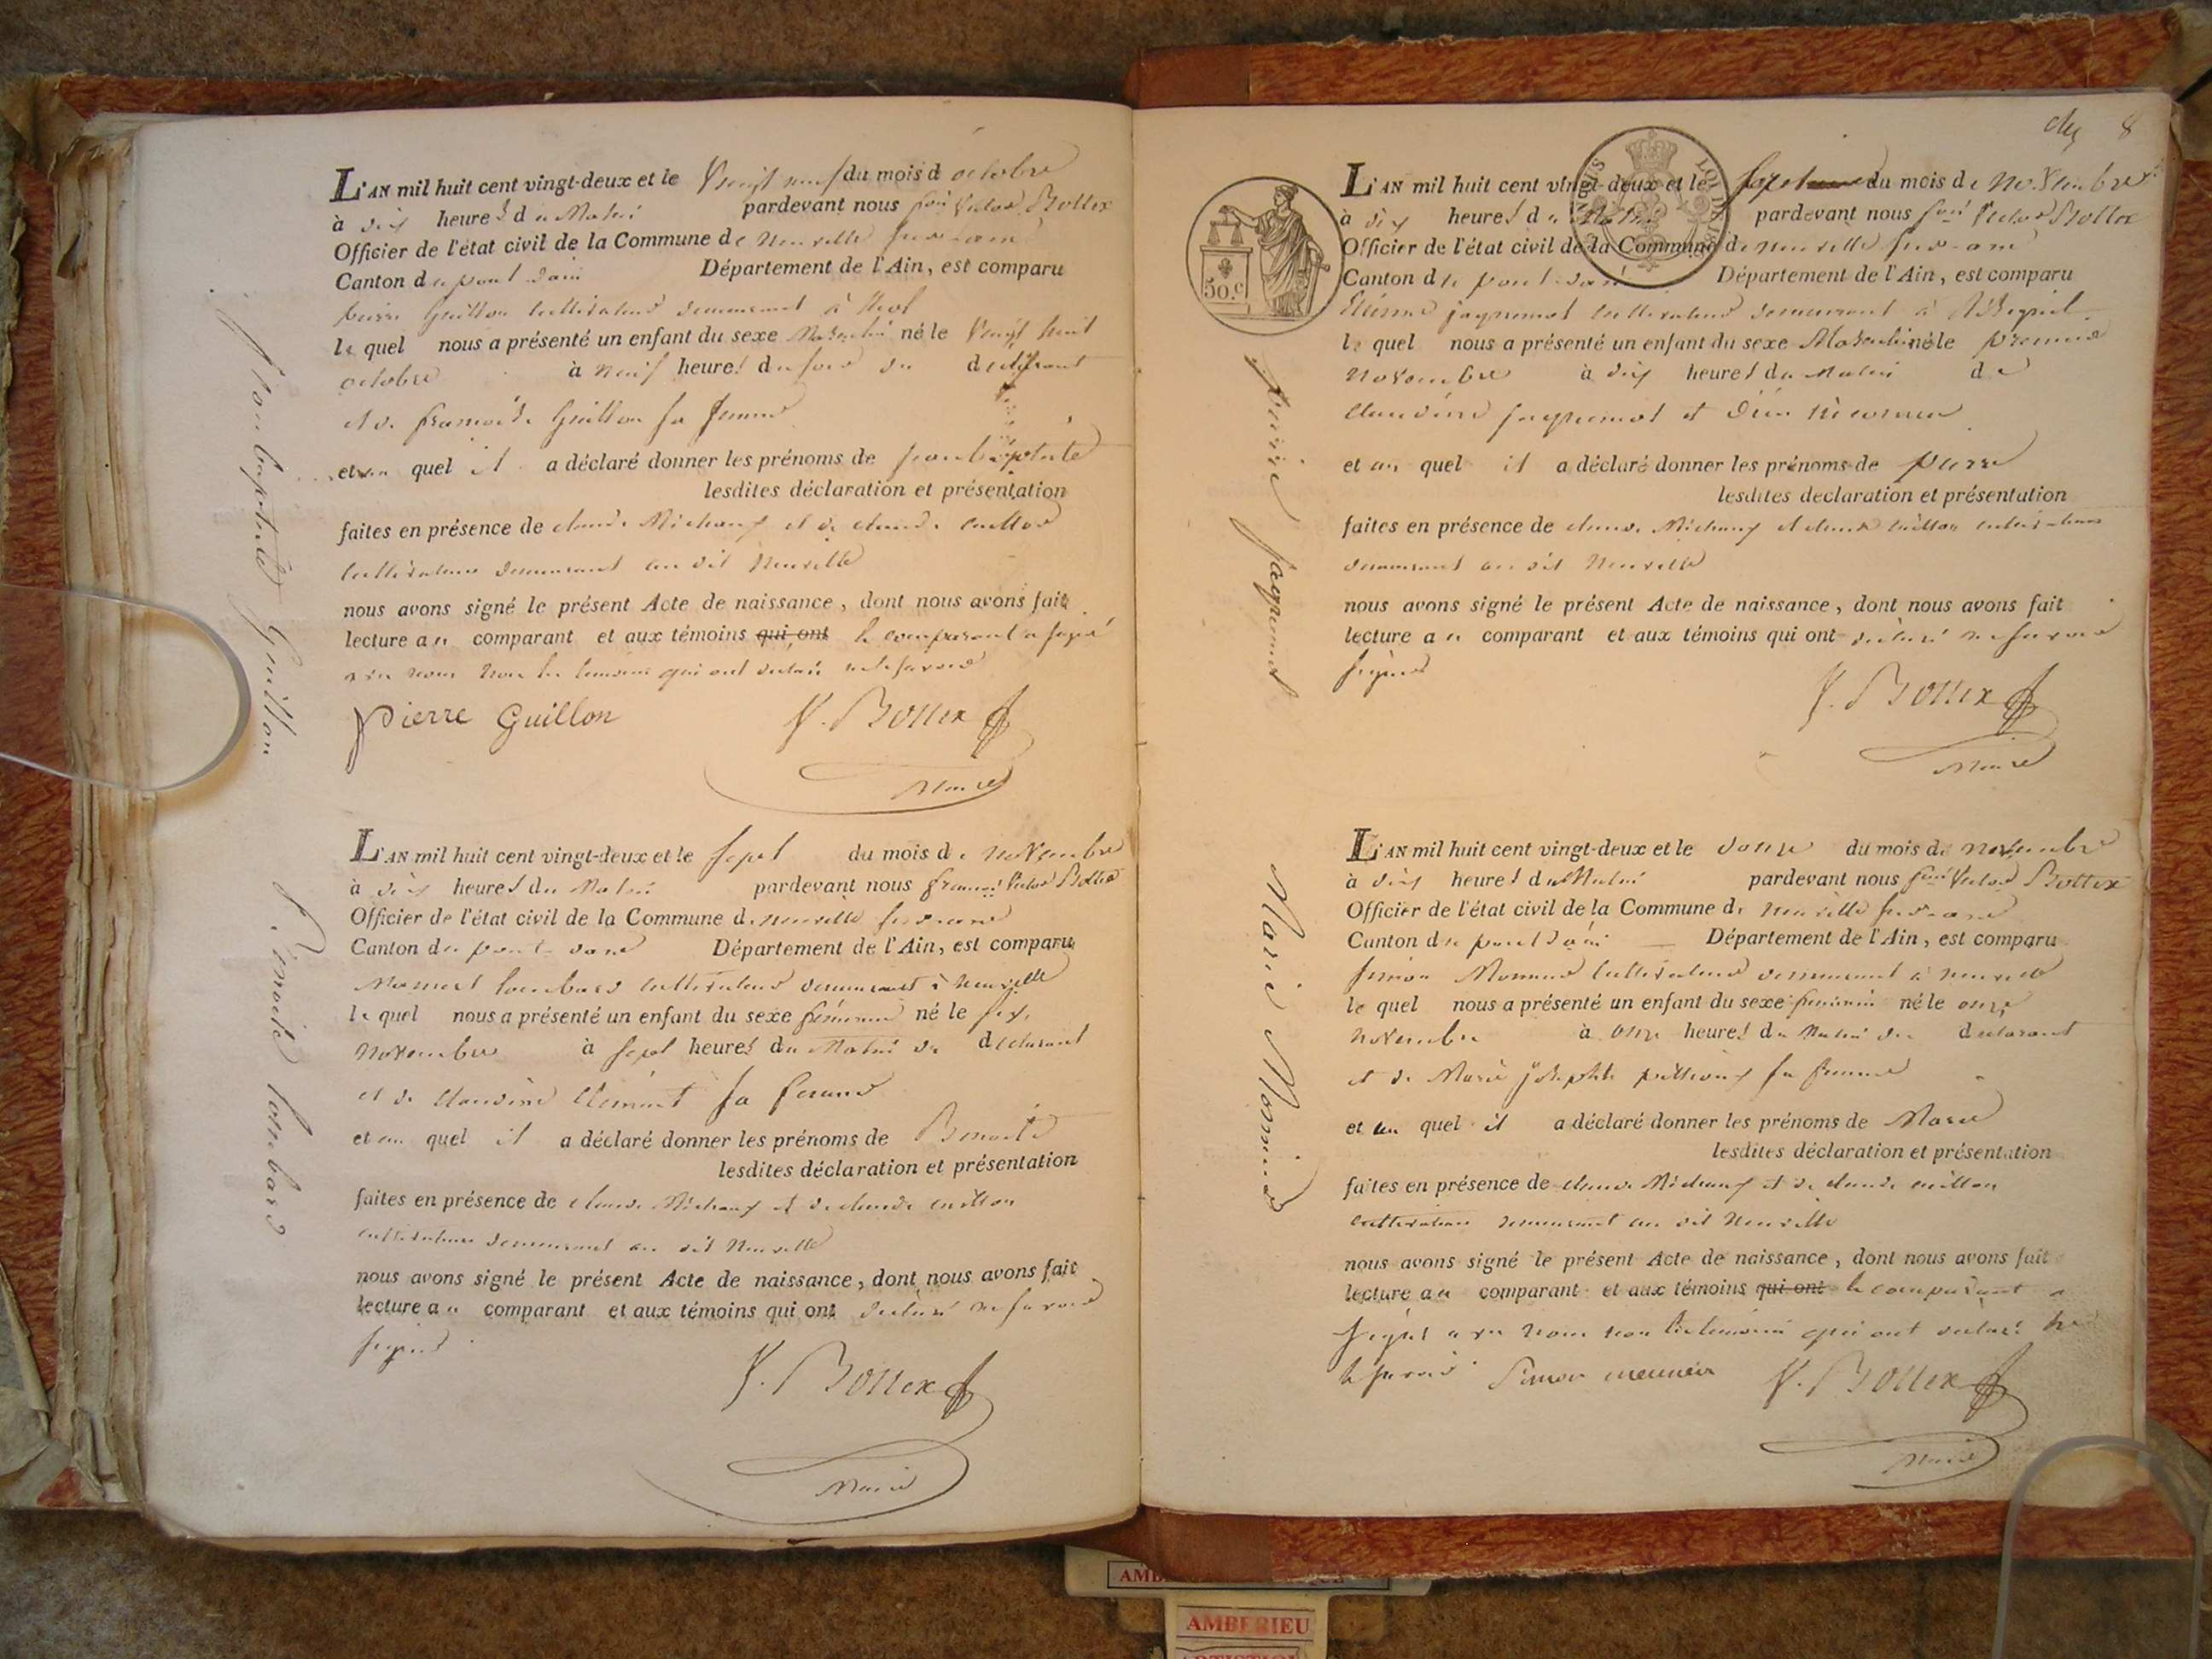 L'AN mil huit cent vingt-deux et le Vingt neuf du mois d octobre
à dix heures du Matin pardevant nous fois Victor Bottex
Officier de l'état civil de la Commune de Neuville sur ain
Canton du pont dain Département de l'Ain, est comparu
pierre Guillon cultivateur demeurant à
le quel nous a présenté un enfant du sexe Masculin né le Vingt huit
octobre à Neuf heures du soir du déclarant
et de Guillon sa femme
et au quel il a déclaré donner les prénoms de jean baptiste
lesdites déclaration et présentation
faites en présence de claude Michaux et de claude
cultivateurs demeurant au dit Neuville
nous avons signé le présent Acte de naissance, dont nous avons fait
lecture au comparant et aux témoins qui ont le comparant a signé
avec nous non les temoins qui ont déclaré ne le savoir
Pierre Guillon V. Bottex
Maire
jean baptiste Guillon
L'AN mil huit cent vingt-deux et le sept du mois de Novembre
à dix heures du Matin pardevant nous françois Victor Bottex
Officier de l'état civil de la Commune de neuville sur ain
Canton du pont dain Département de l'Ain, est comparu
Mamert Lombard cultivateur demeurant à Neuville
le quel nous a présenté un enfant du sexe féminin né le six
Novembre à sept heures du Matin du déclarant
et de claudine Clément sa femme
et au quel il a déclaré donner les prénoms de Benoite
lesdites déclaration et présentation
faites en présence de claude Michaux et de claude
cultivateurs demeurant au dit Neuville
nous avons signé le présent Acte de naissance, dont nous avons fait
lecture au comparant et aux témoins qui ont déclaré ne savoir
signer
V. Bottex
Maire
Benoite Lombard
8
50.c
L'AN mil huit cent vingt-deux et le sept du mois de Novembre
à dix heures du Matin pardevant nous fois Victor Bottex
Officier de l'état civil de la Commune de neuville sur-ain
Canton du pont-dain Département de l'Ain, est comparu
Etienne jaquemet cultivateur demeurant à
le quel nous a présenté un enfant du sexe Masculin né le premier
Novembre à dix heures du Matin de
claudine jaquemet et d'un
et au quel il a déclaré donner les prénoms de pierre
lesdites declaration et présentation
faites en présence de claude Michaux et claude cultivateurs
demeurant au dit Neuville
nous avons signé le présent Acte de naissance, dont nous avons fait
lecture au comparant et aux témoins qui ont déclaré ne savoir
signer
V. Bottex
Maire
pierre jaquemet
L'AN mil huit cent vingt-deux et le douze du mois de novembre
à dix heures du Matin pardevant nous fois Victor Bottex
Officier de l'état civil de la Commune de Neuville sur-ain
Canton du pont dain Département de l'Ain, est comparu
simon Monnier cultivateur demeurant à neuville
le quel nous a présenté un enfant du sexe féminin né le onze
novembre à onze heures du Matin du declarant
et de Marie josephte sa femme
et au quel il a déclaré donner les prénoms de Marie
lesdites déclaration et présentation
faites en présence de claude Michaux et de claude
cultivateurs demeurant au dit Neuville
nous avons signé le présent Acte de naissance, dont nous avons fait
lecture au comparant et aux témoins qui ont le comparant a
signé avec nous non les temoins qui ont déclaré ne
le savoir Simon meunier V. Bottex
Maire
Marie Monnier
AMBERIEU